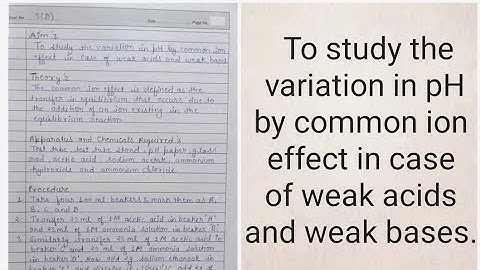 Expt. No. 5(B)
Date
Page No.
Aim :
To study the variation in pH by common ion
effect in case of weak acids and weak bases
Theory :
The common ion effect is defined as the
transfer in equilibrium that occurs due to
the addition of an ion existing in the
equilibrium reaction.
Apparatus and Chemicals Required :
Test tube, test tube stand, pH paper, glass
rod, acetic acid, sodium acetate, ammonium
hydroxide and ammonium chloride
Procedure
1. Take four 100 ml beakers & mark them as A,
B, C and D
2. Transfer 25 ml of 1M acetic acid in beaker 'A'
and 25 ml of 1M ammonia solution in beaker 'B'
3. Similarly transfer 25 ml of 1M acetic acid in
beaker 'C' and 25 ml of 1M ammonia solution
in beaker 'D'. Now add 2g sodium
To study the
variation in pH
by common ion
effect in case
of weak acids
and weak bases.